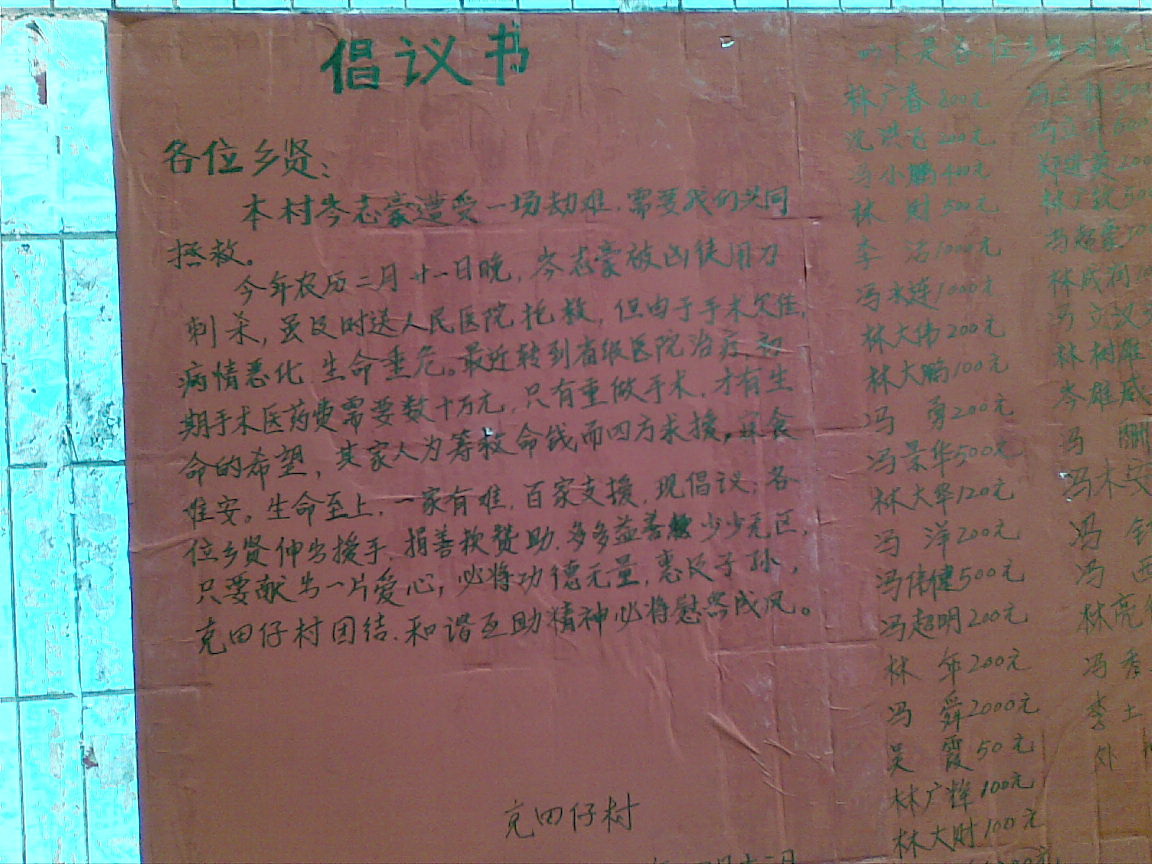 倡议书
各位乡贤：
本村岑志豪遭受一场劫难，需要我们共同
拯救。
今年农历二月廿一日晚，岑志豪被凶徒用刀
刺杀，虽及时送人民医院抢救，但由于手术欠佳，
病情恶化，生命垂危。最近转到省级医院治疗，初
期手术医药费需要数十万元，只有重做手术，才有生
命的希望，其家人为筹救命钱而四方求援，寝食
难安。生命至上，一家有难，百家支援，现倡议，各
位乡贤伸出援手，捐善款赞助，多多益善，少少无区，
只要献出一片爱心，必将功德无量，惠及子孙，
克田仔村团结、和谐互助精神必将蔚然成风。
克田仔村
以下是各位乡贤
林广春 200元
沈洪飞 200元
冯小鹏 400元
林 财 500元
李 洁 1000元
冯水连 1000元
林大伟 200元
林大鹏 100元
冯 勇 200元
冯景华 500元
林大华 120元
冯 洋 200元
冯伟健 500元
冯超明 200元
林 年 200元
冯 舜 2000元
吴 霞 50元
林广辉 100元
林大财 100元
郑进英 200
林广钦 50
冯超豪
林成润 10
冯立汉
林树雄
岑雄威
冯
冯木安
冯
冯 西
林亮
冯 秀
李 土